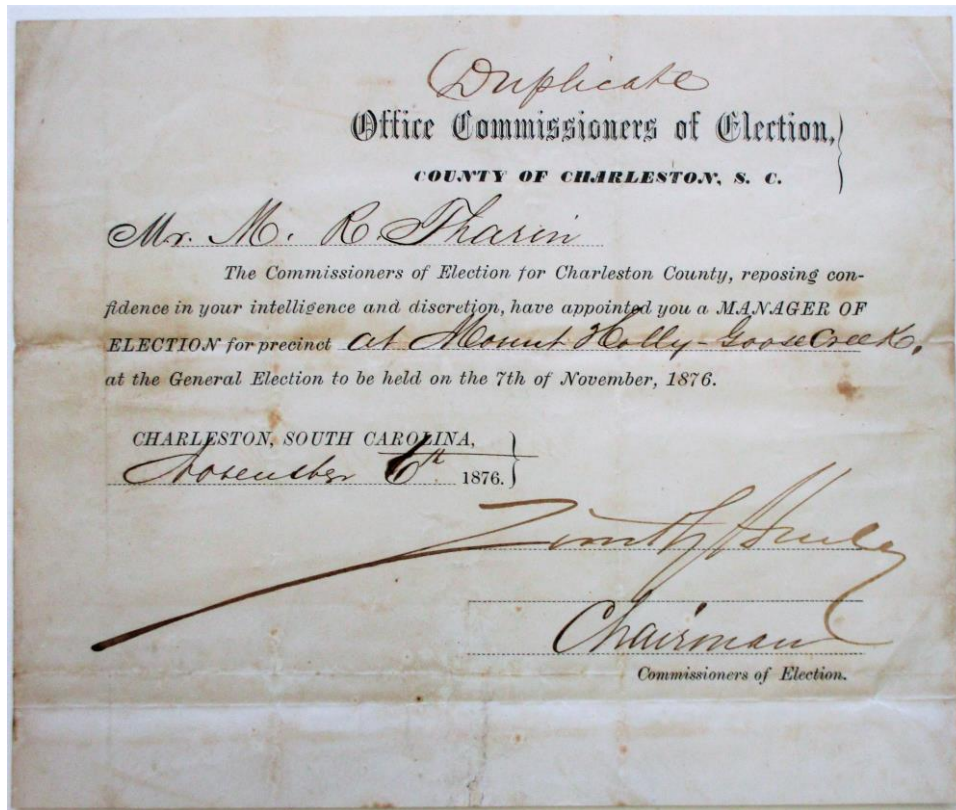 Duplicate
Office Commissioners of Election,
COUNTY OF CHARLESTON, S. C.
Mr. M. R. Tharin
The Commissioners of Election for Charleston County, reposing con-
fidence in your intelligence and discretion, have appointed you a MANAGER OF
ELECTION for precinct at Mount Holly - Goose Creek.
at the General Election to be held on the 7th of November, 1876.
CHARLESTON, SOUTH CAROLINA,
November 6th 1876.
Chairman
Commissioners of Election.